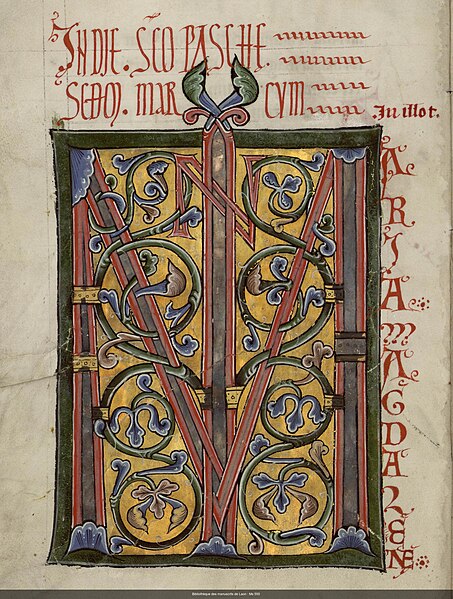 IN DIE. SCO PASCHE.
MARCYM
In illo t.
M
A
R
I
A
M
A
G
D
A
L
E
NE
Bibliothèque des manuscrits de Laon